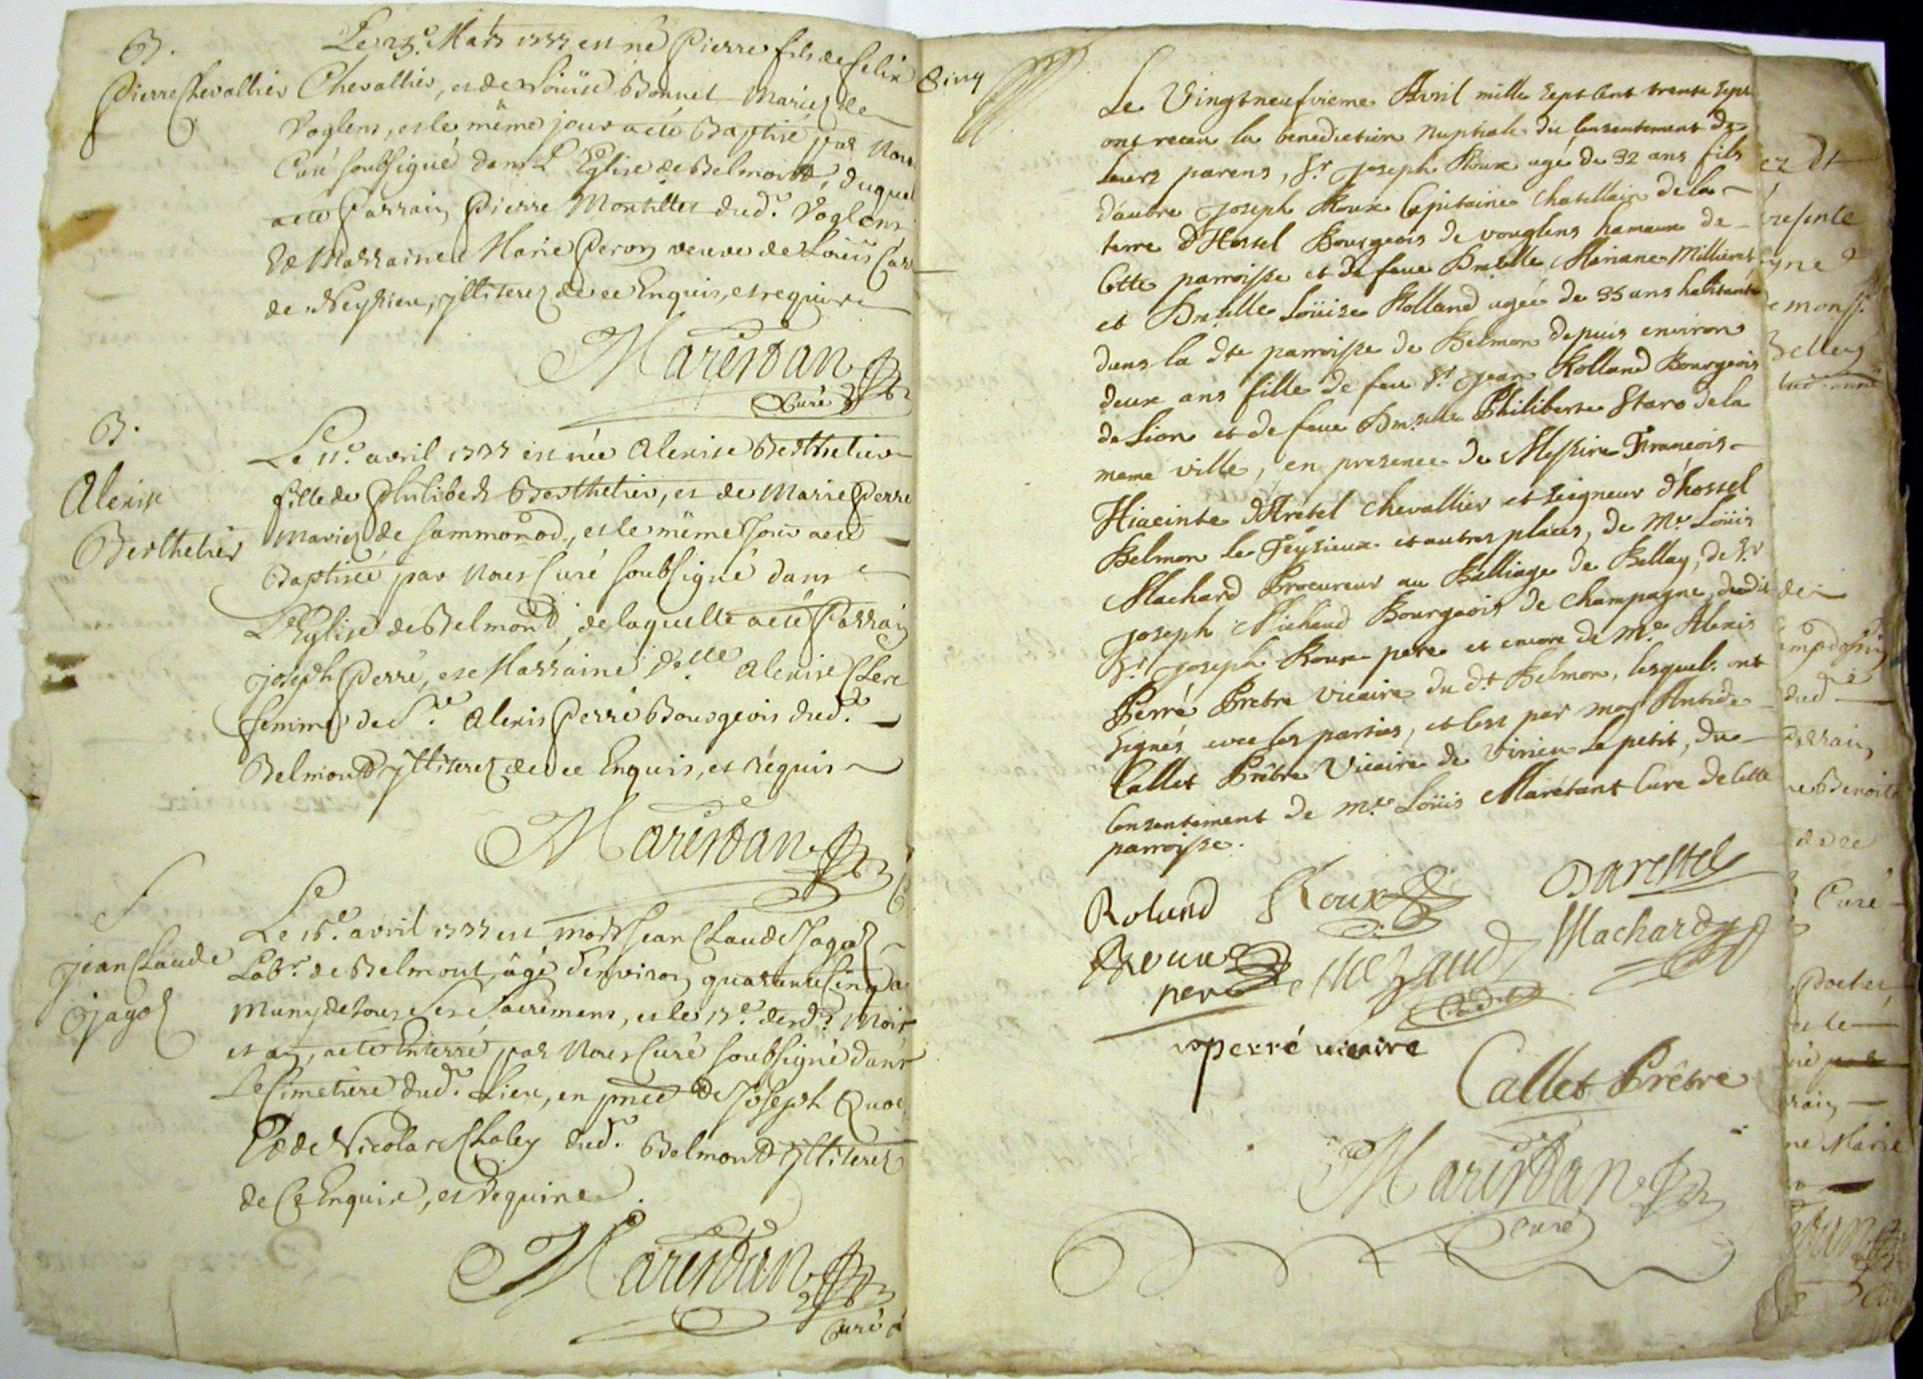 B.
Pierre Chevallier
Le 25e. Mars 1737 est né Pierre fils de Felix
Chevallier, et de Loüise Bonnet Mariez de
Voglens, et le même jour a eté Baptisé par Nous
Curé soubsigné dans L'Eglise de Belmont, duquel
a eté Parrain Pierre Montillet dud.t Voglens
Et Marraine Marie Peron veuve de Loüis
de Neyrieu, yllitérez de ce Enquis, et requis
Marestan
Curé
B.
Alexise
Berthelier
Le 11e. avril 1737 est née Alexise Berthelier
fille de Philibert Berthelier, et de Marie Perre
Mariez de Sammonod, et le même jour a eté
Baptisée par Nous Curé soubsigné dans
L'Eglise de Belmond, de laquelle a eté Parrain
Joseph Perré, et Marraine D.elle Alexise Clere
femme de S.r Alexis Perré Bourgeois dud.t
Belmond yllitérez de ce Enquis, et Réquis
Marestan
S
Jean Claude
Jagot
Le 16e. avril 1737 est mort Jean Claude Jagot
Lab.r de Belmont, âgé d'environ quarente Cinq
Muny de tous ses Sacremens, et le 17e. desd.t Mois
et an, a eté Enterré par Nous Curé soubsigné dans
Le Cimetiére dud.t Lieu, en pnce de Joseph
Et de Nicolas Chaley dud.t Belmond yllitérez
de Ce Enquis, et Requis.
Marestan
Curé
Cinq
Le Vingtneufvieme Avril mille sept Cent trente sept
ont receu la benediction Nuptiale du consentement de
leurs parens, S.r Joseph Roux agé de 32 ans fils
d'autre Joseph Roux Capitaine Chatellain de la
terre d'Hossel Bourgeois de vouglens hameau de
Cette parroisse et de feue Dm.elle Mariane Millieret
et Dm.elle Loüise Rolland agée de 35 ans habitante
dans la dte parroisse de Belmon depuis environ
deux ans fille de feu S.r Jean Rolland Bourgeois
de Lion et de feue Dm.elle Philiberte Staro de la
meme ville, en presence de Messire Francois
Hiacinte d'Aretel Chevallier et seigneur d'hossel
Belmon le Feysieux et autres places, de Mr Loüis
Machard Procureur au Balliage de Bellay, de Sr
Joseph Michaud Bourgeois de Champagne, dudit
S.r Joseph Roux pere et encore de Mre Alexis
Perré Prêtre Vicaire du dt Belmon, lesquels ont
signés avec les parties, et c'est par moy Antide
Callet Prêtre Vicaire de Virieu le petit, du
Consentement de Mre Loüis Marétant Curé de Cette
parroisse.
Roland Roux Darestel
Roux
pere Machard
perré vicaire
Callet Prêtre
Marestan
Curé